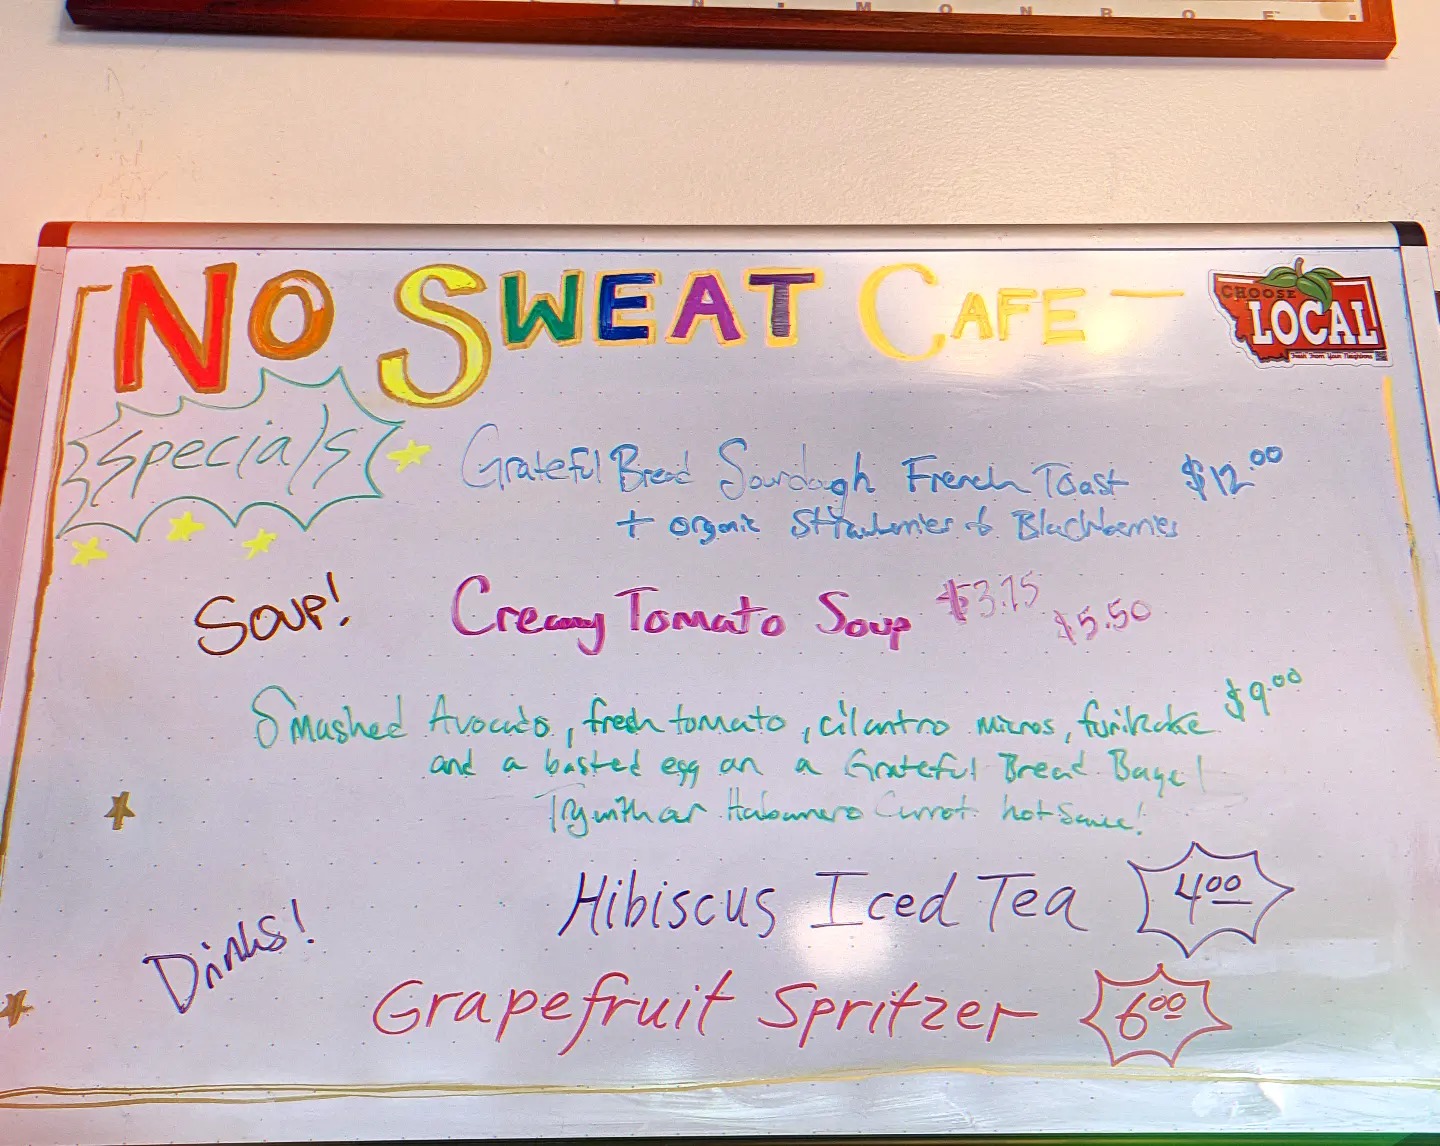 N • M O N R O E
NO SWEAT CAFE
CHOOSE
LOCAL!
Fresh From Your Neighbors
Specials
Grateful Bread Sourdough French Toast $12.00
+ organic Strawberries & Blackberries
Soup! Creamy Tomato Soup $3.75
$5.50
Smashed Avocado, fresh tomato, cilantro micros, furikake $9.00
and a basted egg on a Grateful Bread Bagel
Try with our Habanero Carrot hot sauce!
Hibiscus Iced Tea 4.00
Drinks!
Grapefruit Spritzer 6.00